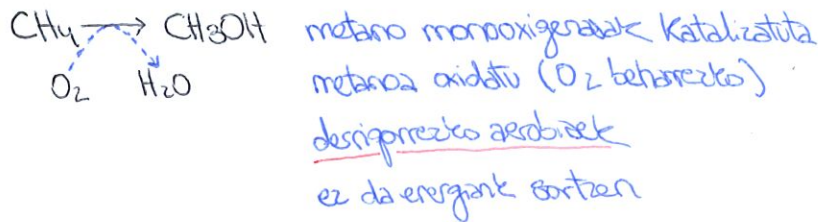 CH4 → CH3OH metano monooxigenasak katalizatuta
O2 H2O metanoa oxidatu (O2 beharrezko)
derrigorrezko aerobioek
ez da energiarik sortzen